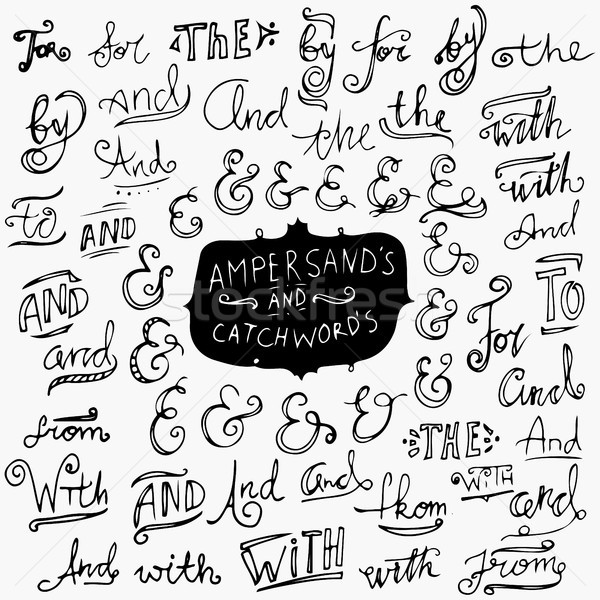 For for THE by for by the
by And And the the with
And with
to AND & & & & & & & & And
& AMPERSAND'S &
AND & AND TO
CATCHWORDS & For
and & & And
from & & & & & THE And
With AND And and from WITH and
And with WITH with From
stockfresh